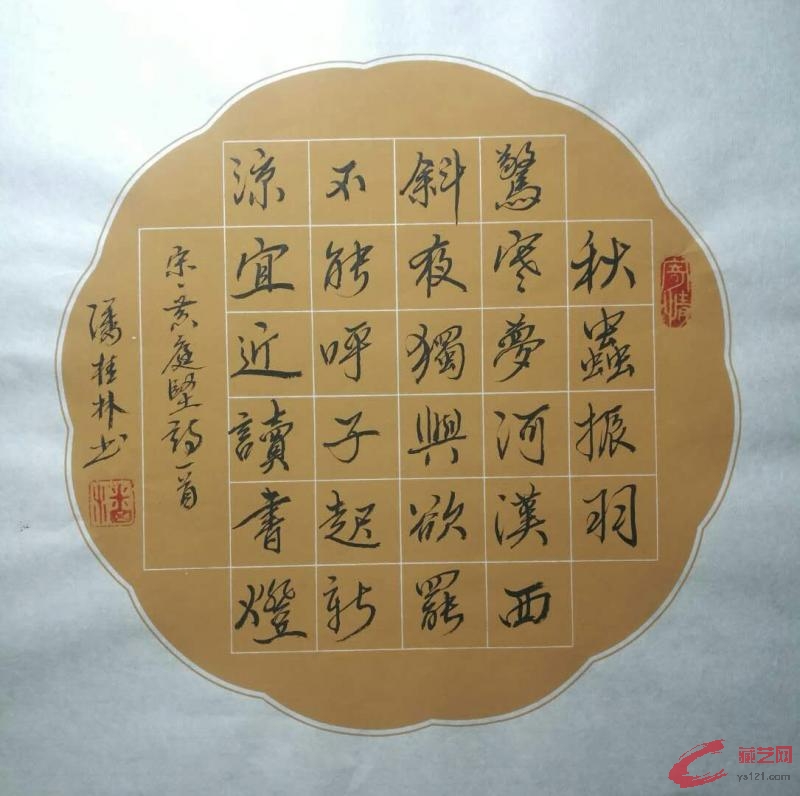 寄情
秋蟲振羽
驚寒夢河漢西
斜夜獨興欲罷
不能呼子起新
涼宜近讀書燈
宋、黄庭堅詩一首
潘桂林书
藏艺网
ys121.com